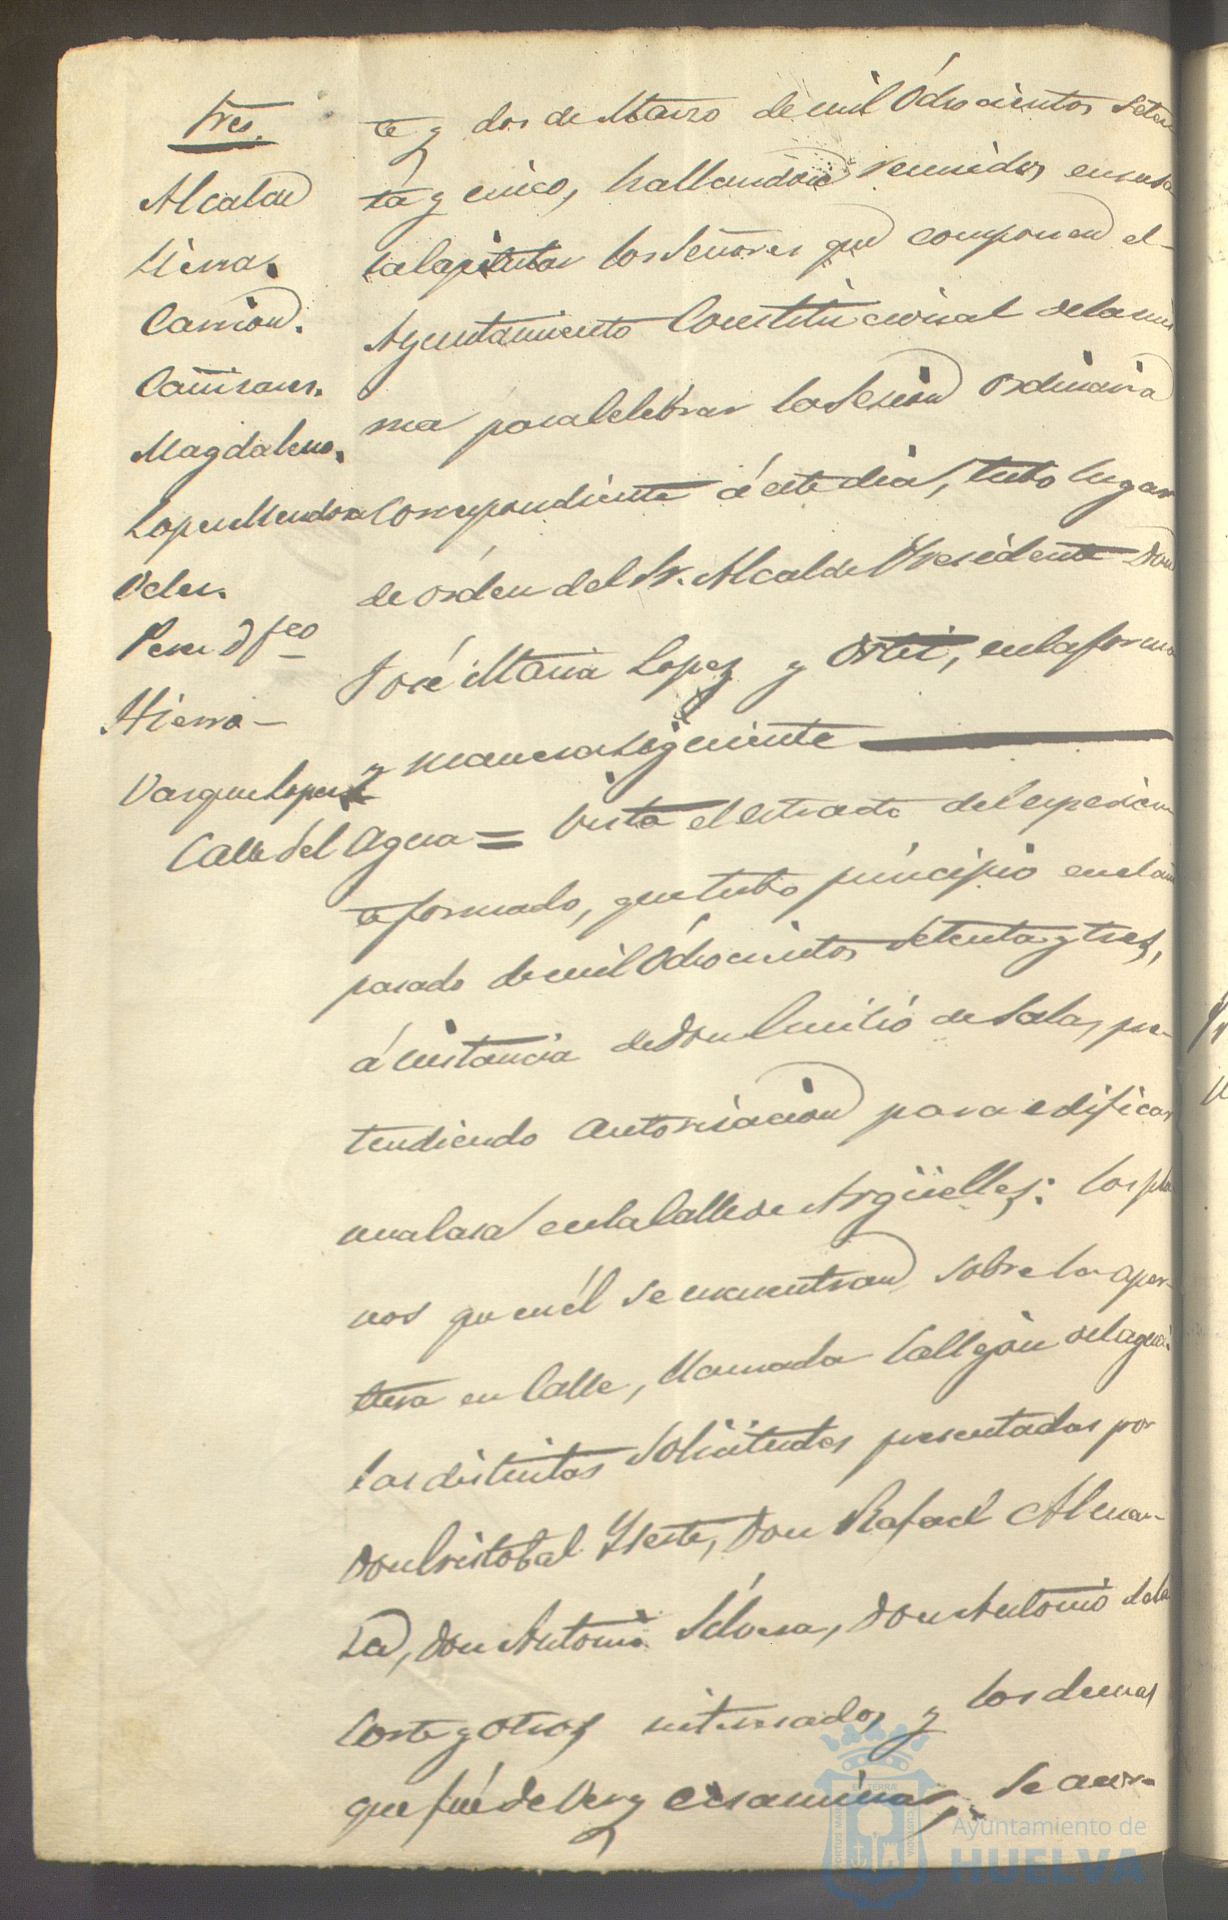 Sres.
Alcalde
Sierra.
Carrion.
Cañisares.
Magdaleno.
Lopez Mendoza
Velez.
Perez D. Fco
Hierro
Vazquez Lopez
te y dos de Marzo de mil Ochocientos Seten
ta y cinco, hallandose reunidos en su sa
la Capitular los Señores que componen el
Ayuntamiento Constitucional de la mis
ma para Celebrar la Sesion Ordinaria
Correspondiente á este dia, tubo lugar
de orden del Sr. Alcalde Presidente Don
José Maria Lopez y Ortiz, en la forma
y manera siguiente
Calle del Agua = Vista el estracto del espedien
te formado, que tubo principio en el año
pasado de mil Ochocientos Setenta y tres,
á instancia de Don Emilio de Salas, pre
tendiendo autorisacion para edificar
una Casa en la Calle de Argüelles: los pla
nos que en él se encuentran sobre la aper
tura en Calle, llamada Callejon del agua:
las distintas Solicitudes presentadas por
Don Cristobal Yseste, Don Rafael Alman
sa, Don Antonio Silvera, Don Antonio de la
Corte y otros interesados y los demas
que fué de Ver y ecsaminar, Se acor
Ayuntamiento de
HUELVA